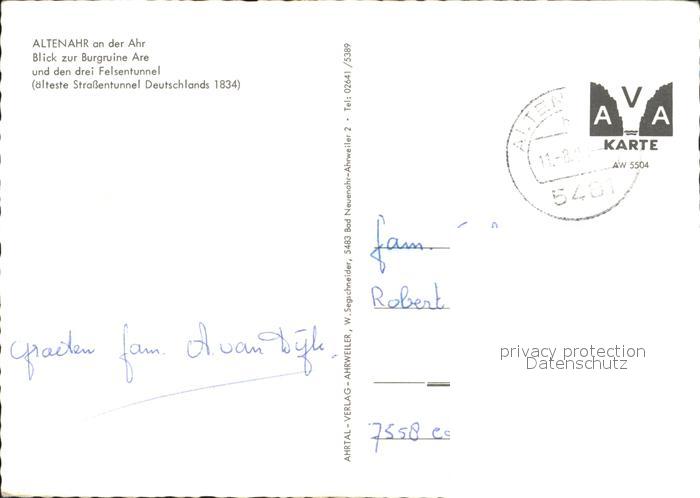 ALTENAHR an der Ahr
Blick zur Burgruine Are
und den drei Felsentunnel
(älteste Straßentunnel Deutschlands 1834)
AHRTAL - VERLAG - AHRWEILER, W. Segschneider, 5483 Bad Neuenahr-Ahrweiler 2 · Tel: 02641/5389
AVA
KARTE
AW 5504
ALTEN
11.-8.
5481
fam.
Robert
groeten fam. A. van Dijk.
privacy protection
Datenschutz
7558